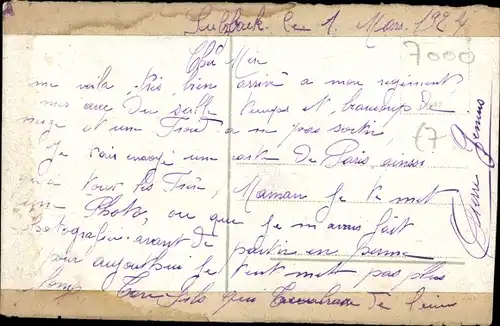 Sulzbach, le 1 Mars. 1924
7000
Cher Mère
me voila, très, bien arrivé a mon regiment
mes avec du salle temps et, beaucoup de
neige et un Froid a ne pas sortir,
17
Je vais envoyé une carte de Paris, ainsi
qu'a tous les Frère, Maman Je te met
une Photo, ou que Je m'avais fait
Photografier avant de partir en perme
pour aujourd'hui Je t'ent met pas plus
long, Ton fils qui t'embrasse de loin
Pierre